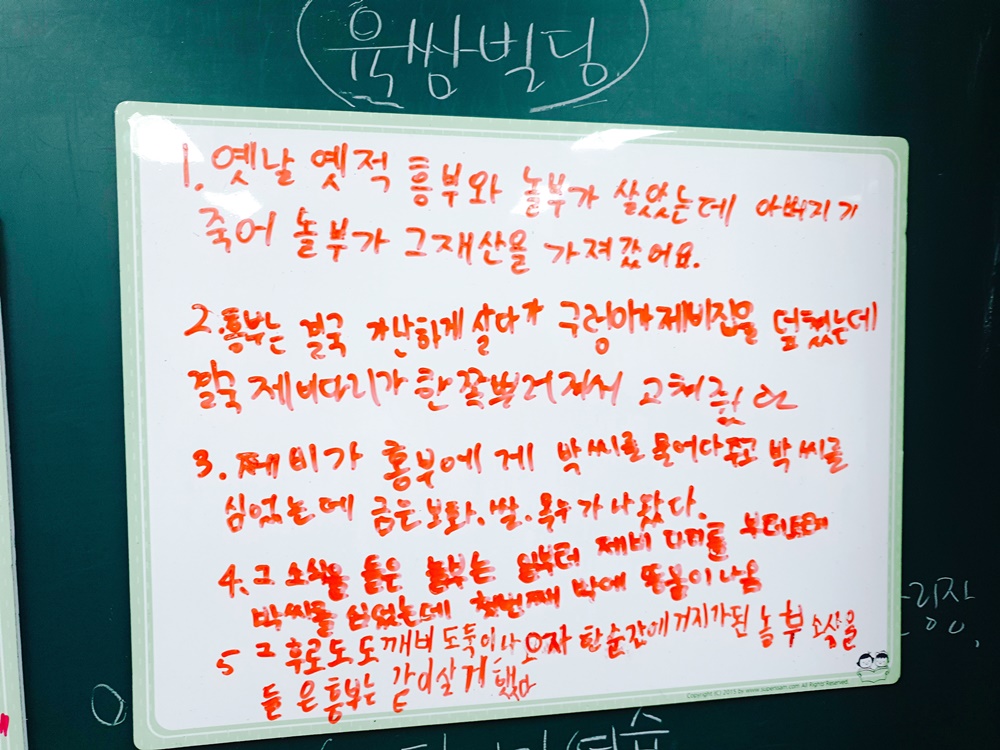 육쌈빌딩
1. 옛날 옛적 흥부와 놀부가 살았는데 아뻐지가
죽어 놀부가 그재산을 가져갔어요.
2. 흥부는 결국 가난하게 살다가 구렁이가 제비집을 덮쳤는데
결국 제비다리가 한쪽뿌러져서 고쳐줬
3. 쩨비가 흥부에게 박씨를 물어다주고 박씨를
심었는데 금은보화.쌀.옥수가 나왔다.
4. 그 소식을 들은 놀부는 일부터 제비 다리를
박씨를 심었는데 첫번째 박에 똥물이 나옴
5 그 후로도 도깨비 도둑이 나오자 한순간에 거지가된 놀부 소식을
들은 흥부는 같이살게 했다
Copyright (C) 2015 by www.superssam.com All Rights Reserved.